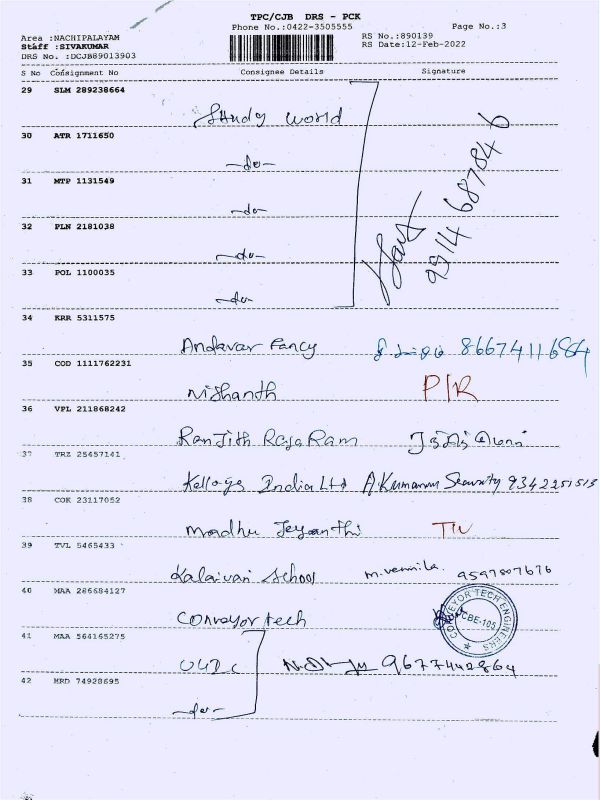 TPC/CJB DRS - PCK
Phone No.:0422-3505555
Page No.:3
Area :NACHIPALAYAM
RS No.:890139
Staff :SIVAKUMAR
RS Date:12-Feb-2022
DRS No. :DCJB89013903
S No Consignment No Consignee Details Signature
29 SLM 289238664
world
30 ATR 1711650
-do-
31 MTP 1131549
-do-
32 PLN 2181038
-do-
33 POL 1100035
-do-
9514687846
34 KRR 5311575
Andavar Fancy 8667411684
35 COD 1111762231
Nishanth P/R
36 VPL 211868242
Ranjith Raja Ram
37 TRZ 25457141
Kellogs India Ltd A Kumaran Security 9342251513
38 COK 23117052
Madhu Jeyanthi
39 TVL 5465433
Kalaivani School m. vennila. 9597807676
40 MAA 286684127
Conveyor tech
CONVEYOR TECH ENGINEERS
CBE-105
41 MAA 564165275
9677442864
42 MRD 74928695
-do-